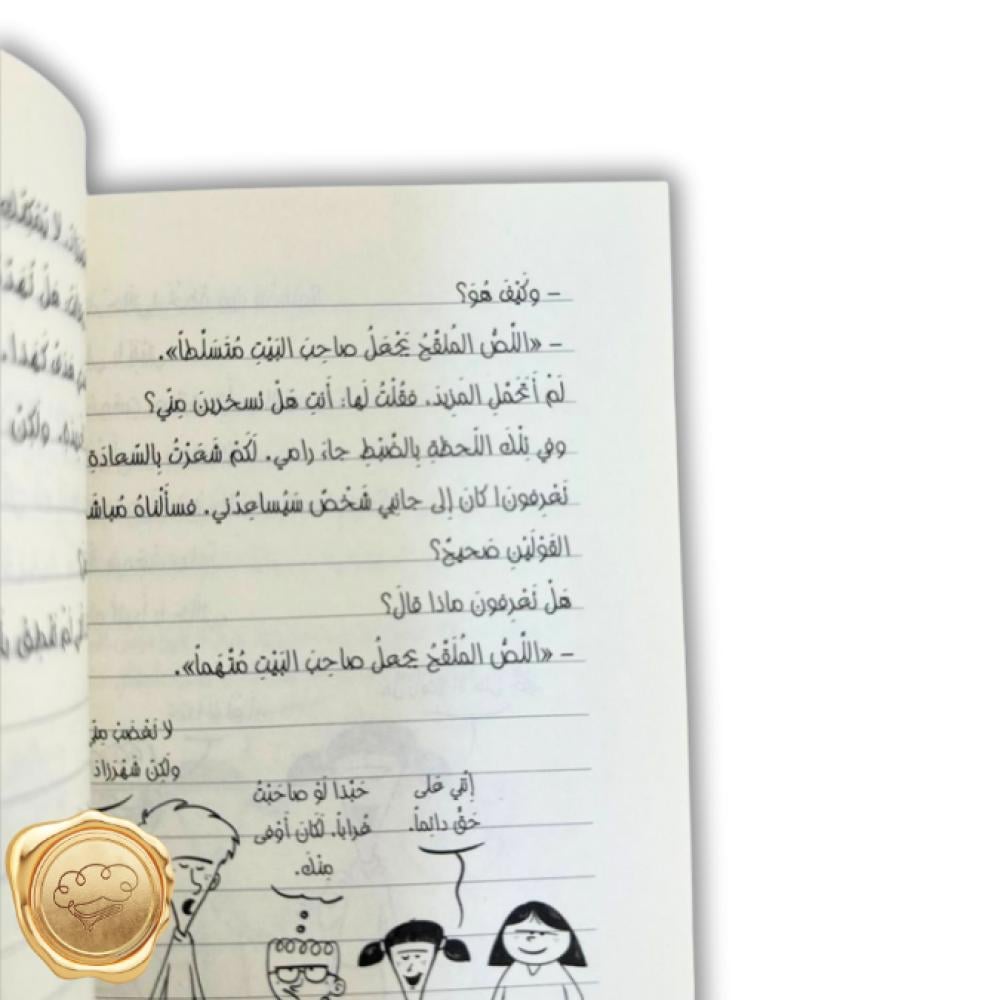 – وَكَيْفَ هُوَ؟
– «اللِّصُّ المُلَقَّحُ يَجْعَلُ صاحِبَ البَيْتِ مُتَسَلِّطاً».
لَمْ أَتَحَمَّلِ المَزيدَ. فقُلْتُ لَها: أَنتِ هَلْ تسخرينَ مِنّي؟
وفي تِلْكَ اللّحظةِ بِالضَّبْطِ جاءَ رامي. لَكَمْ شَعَرْتُ بِالسّعادَةِ
تَعْرِفونَ! كانَ إلى جانِبي شَخْصٌ سَيُساعِدُني. فسأَلْناهُ مُباشَ
القَوْلَيْنِ صَحيحٌ؟
هَلْ تَعْرِفونَ ماذا قالَ؟
– «اللِّصُّ المُلَقَّحُ يجعلُ صاحِبَ البَيْتِ مُتَّهَماً».
لا تَغْضَبْ مِنّي
ولَكِنْ شَهْرَزادَ
إنّني عَلى
حَقٍّ دائِماً.
حَبَّذا لَوْ صاحَبْتُ
غُراباً. لَكانَ أَوْفى
مِنْكَ.